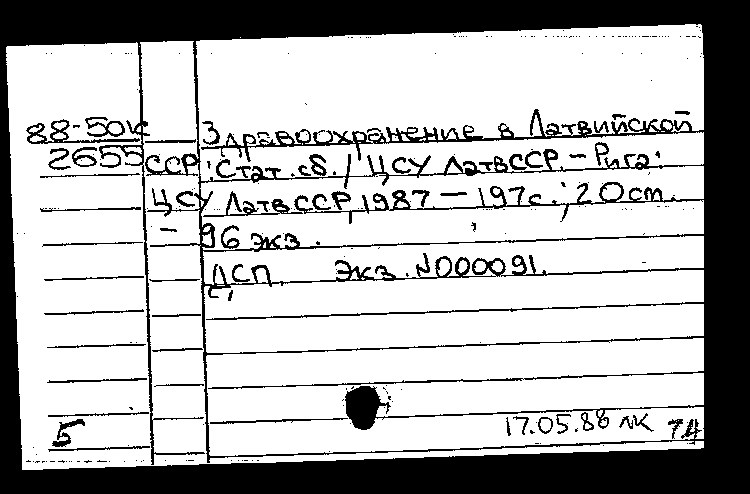 88-50к Здравоохранение в Латвийской
2655 ССР: Стат. сб. / ЦСУ ЛатвССР. – Рига:
ЦСУ ЛатвССР, 1987 – 197с.; 20 см.
– 96 экз.
ДСП. Экз. N000091.
5 17.05.88 74